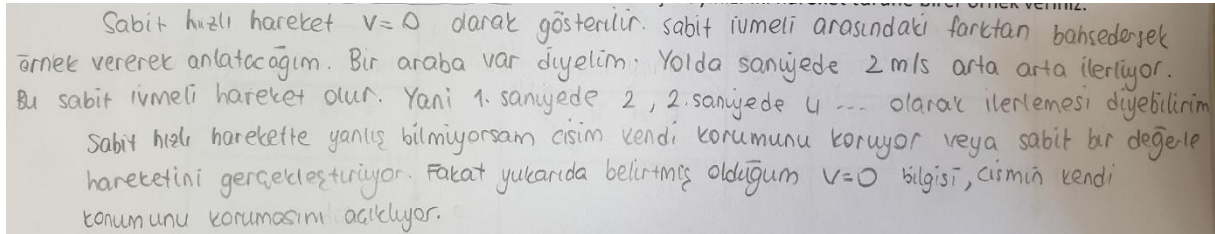 Sabit hızlı hareket v=0 olarak gösterilir. sabit ivmeli arasındaki farktan bahsedersek
örnek vererek anlatacağım. Bir araba var diyelim. Yolda saniyede 2 m/s arta arta ilerliyor.
Bu sabit ivmeli hareket olur. Yani 1. saniyede 2, 2. saniyede 4 ... olarak ilerlemesi diyebilirim
Sabit hızlı harekette yanlış bilmiyorsam cisim kendi korumunu koruyor veya sabit bir değerle
hareketini gerçekleştiriyor. Fakat yukarıda belirtmiş olduğum v=0 bilgisi, cismin kendi
konumunu korumasını açıklıyor.